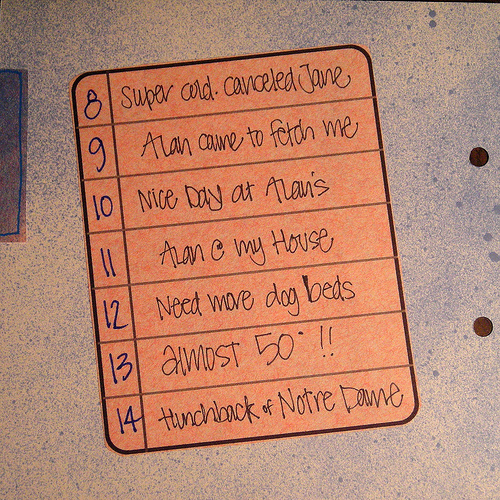 8 Super cold. canceled Jane
9 Alan came to fetch me
10 Nice Day at Alan's
11 Alan @ my House
12 Need more dog beds
13 almost 50° !!
14 Hunchback of Notre Dame